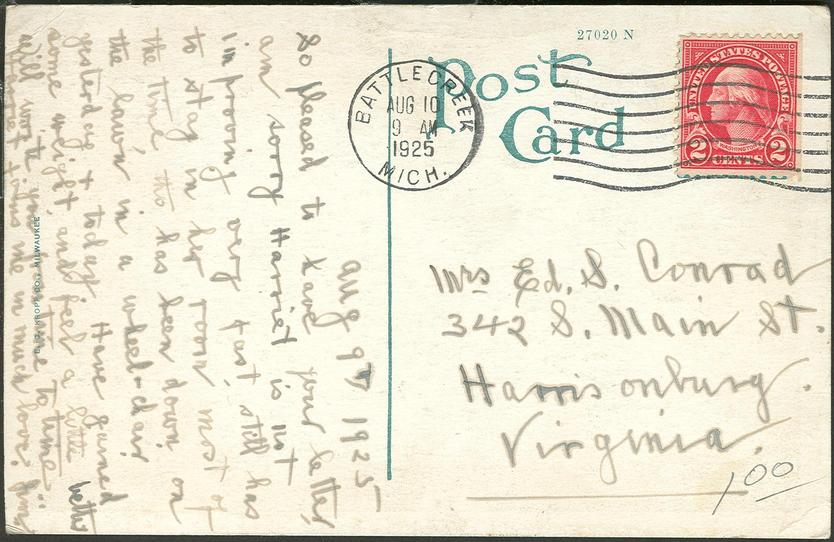 27020 N
Post
Card
BATTLE CREEK
AUG 10
9 AM
1925
MICH.
UNITED STATES POSTAGE
WASHINGTON
2 CENTS 2
Mrs Ed. S. Conrad
342 S. Main St.
Harrisonburg.
Virginia.
1 00
Aug 9th 1925
So pleased to have your letter,
am sorry Harriet is not
improving very fast, still has
to stay in her room most of
the time she has been down on
the lawn in a wheel-chair
yesterday & today Have gained
some weight and feel a little better
Will write you time to time.
time in much love.
MILWAUKEE